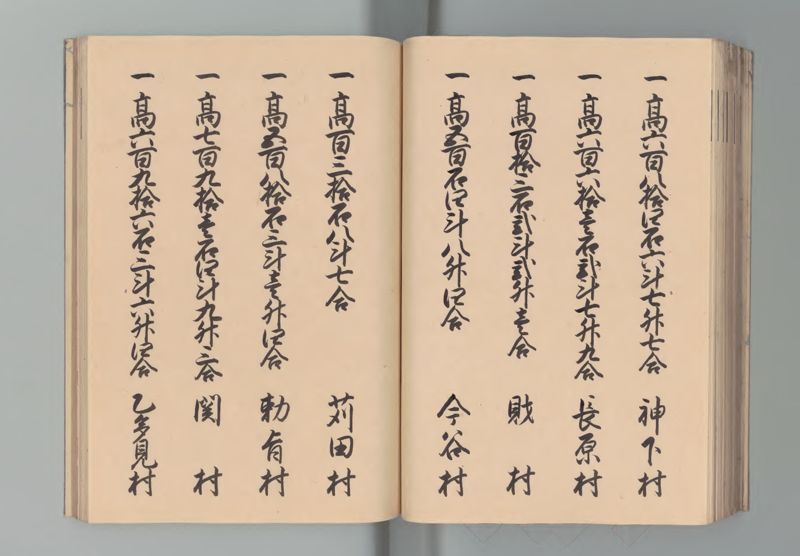 一高六百八拾四石六斗七升七合 神下村
一高六百六拾壱石弐斗七升九合 長原村
一高百拾三石弐斗弐升壱合 財村
一高五百石四斗八升四合 今谷村
一高百三拾石八斗七合 苅田村
一高五百八拾石三斗壱升四合 勅旨村
一高七百九拾壱石四斗九升三合 関村
一高六百九拾六石三斗六升四合 乙多見村